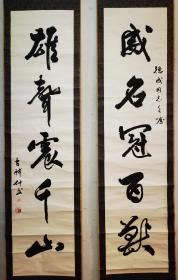 威名冠百兽
雄声震千山